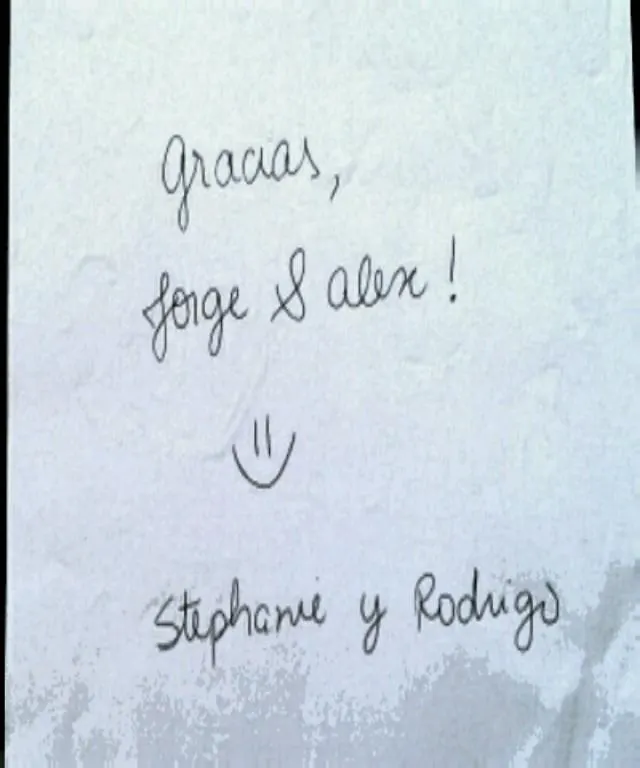 Gracias,
Jorge & alex!
Stephanie y Rodrigo